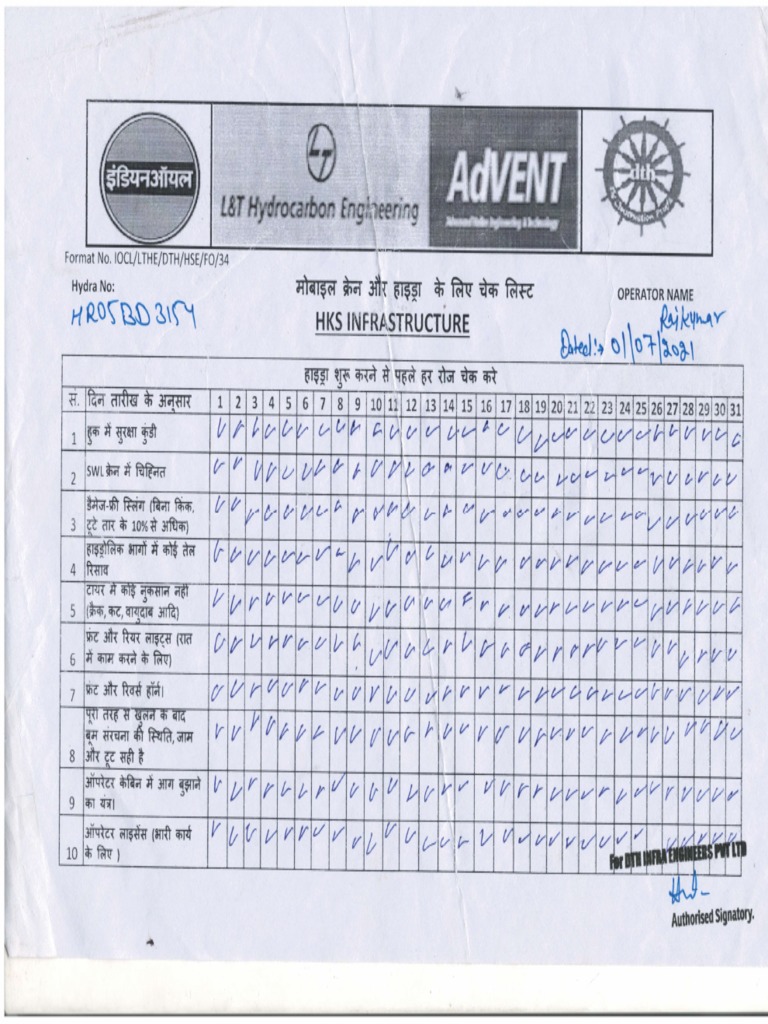 इंडियनऑयल
L&T Hydrocarbon Engineering
AdVENT
dth
Format No. IOCL/LTHE/DTH/HSE/FO/34
Hydra No:
HR05BD3154
मोबाइल क्रेन और हाइड्रा के लिए चेक लिस्ट
HKS INFRASTRUCTURE
OPERATOR NAME
Rajkumar
Dated:→ 01/07/2021
हाइड्रा शुरू करने से पहले हर रोज चेक करे
सं. दिन तारीख के अनुसार 1 2 3 4 5 6 7 8 9 10 11 12 13 14 15 16 17 18 19 20 21 22 23 24 25 26 27 28 29 30 31
1 हुक में सुरक्षा कुंडी
2 SWL क्रेन में चिह्नित
3 डैमेज-फ्री स्लिंग (बिना किंक,
टूटे तार के 10% से अधिक)
4 हाइड्रोलिक भागों में कोई तेल
रिसाव
5 टायर में कोई नुकसान नहीं
(क्रैक, कट, वायुदाब आदि)
6 फ्रंट और रियर लाइट्स (रात
में काम करने के लिए)
7 फ्रंट और रिवर्स हॉर्न।
8 पूरी तरह से खुलने के बाद
बूम संरचना की स्थिति, जाम
और टूट सही है
9 ऑपरेटर केबिन में आग बुझाने
का यंत्र।
10 ऑपरेटर लाइसेंस (भारी कार्य
के लिए )
For DTH INFRA ENGINEERS PVT LTD
Authorised Signatory.